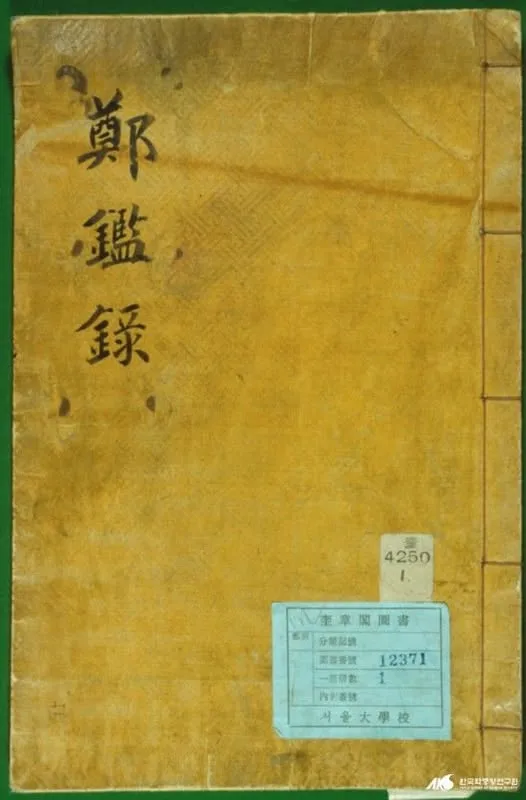 鄭鑑錄
奎
4250
1
奎章閣圖書
分類記號
圖書番號 12371
一部冊數 1
內割番號
서울大學校
AKS 한국학중앙연구원